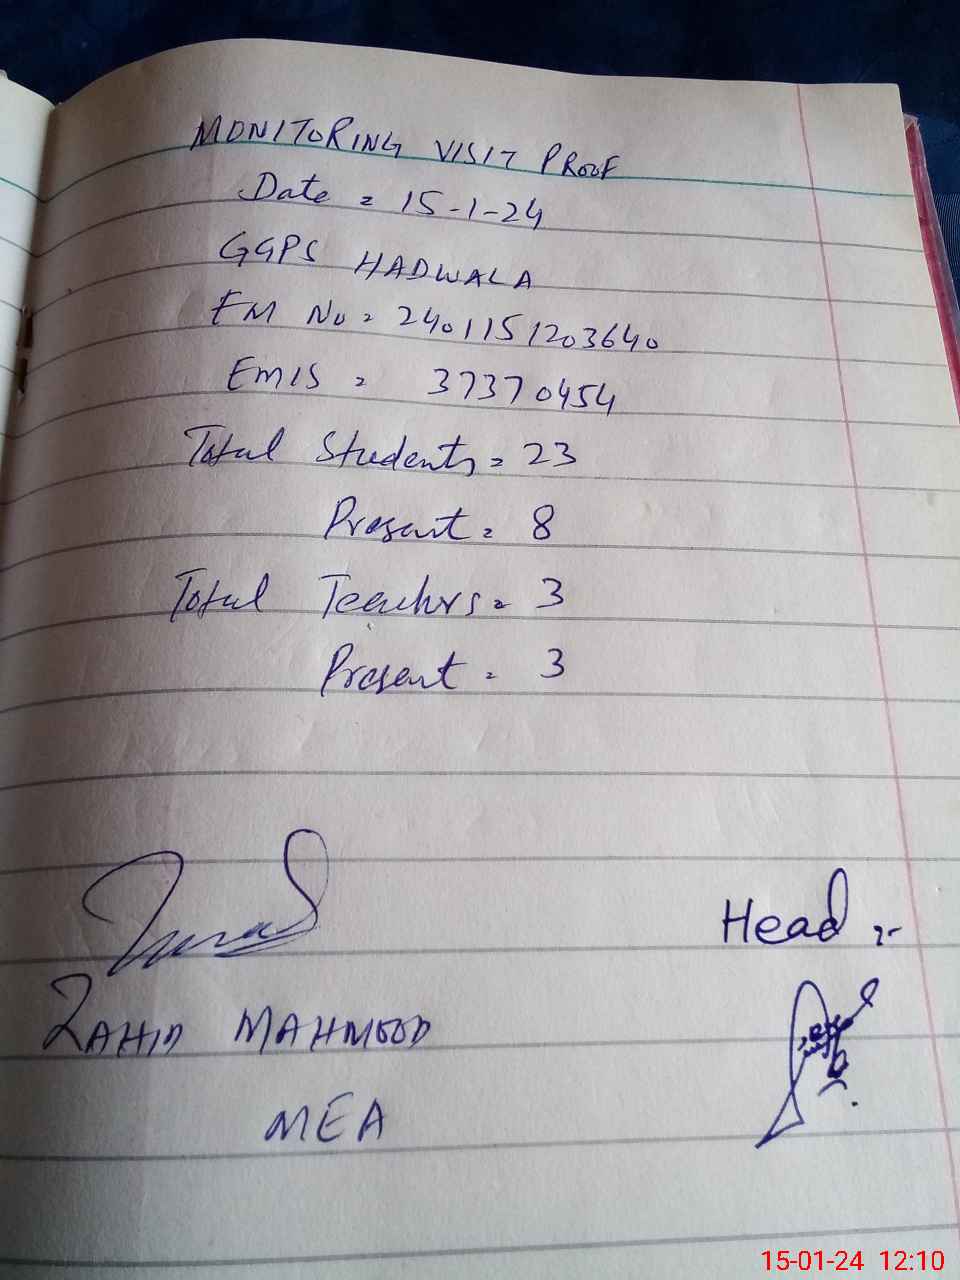 MONITORING VISIT PROOF
Date = 15-1-24
GGPS HADWALA
EM No = 2401151203640
EMIS = 37370454
Total Students = 23
Present = 8
Total Teachers = 3
Present = 3
Head :-
ZAHID MAHMOOD
MEA
15-01-24 12:10